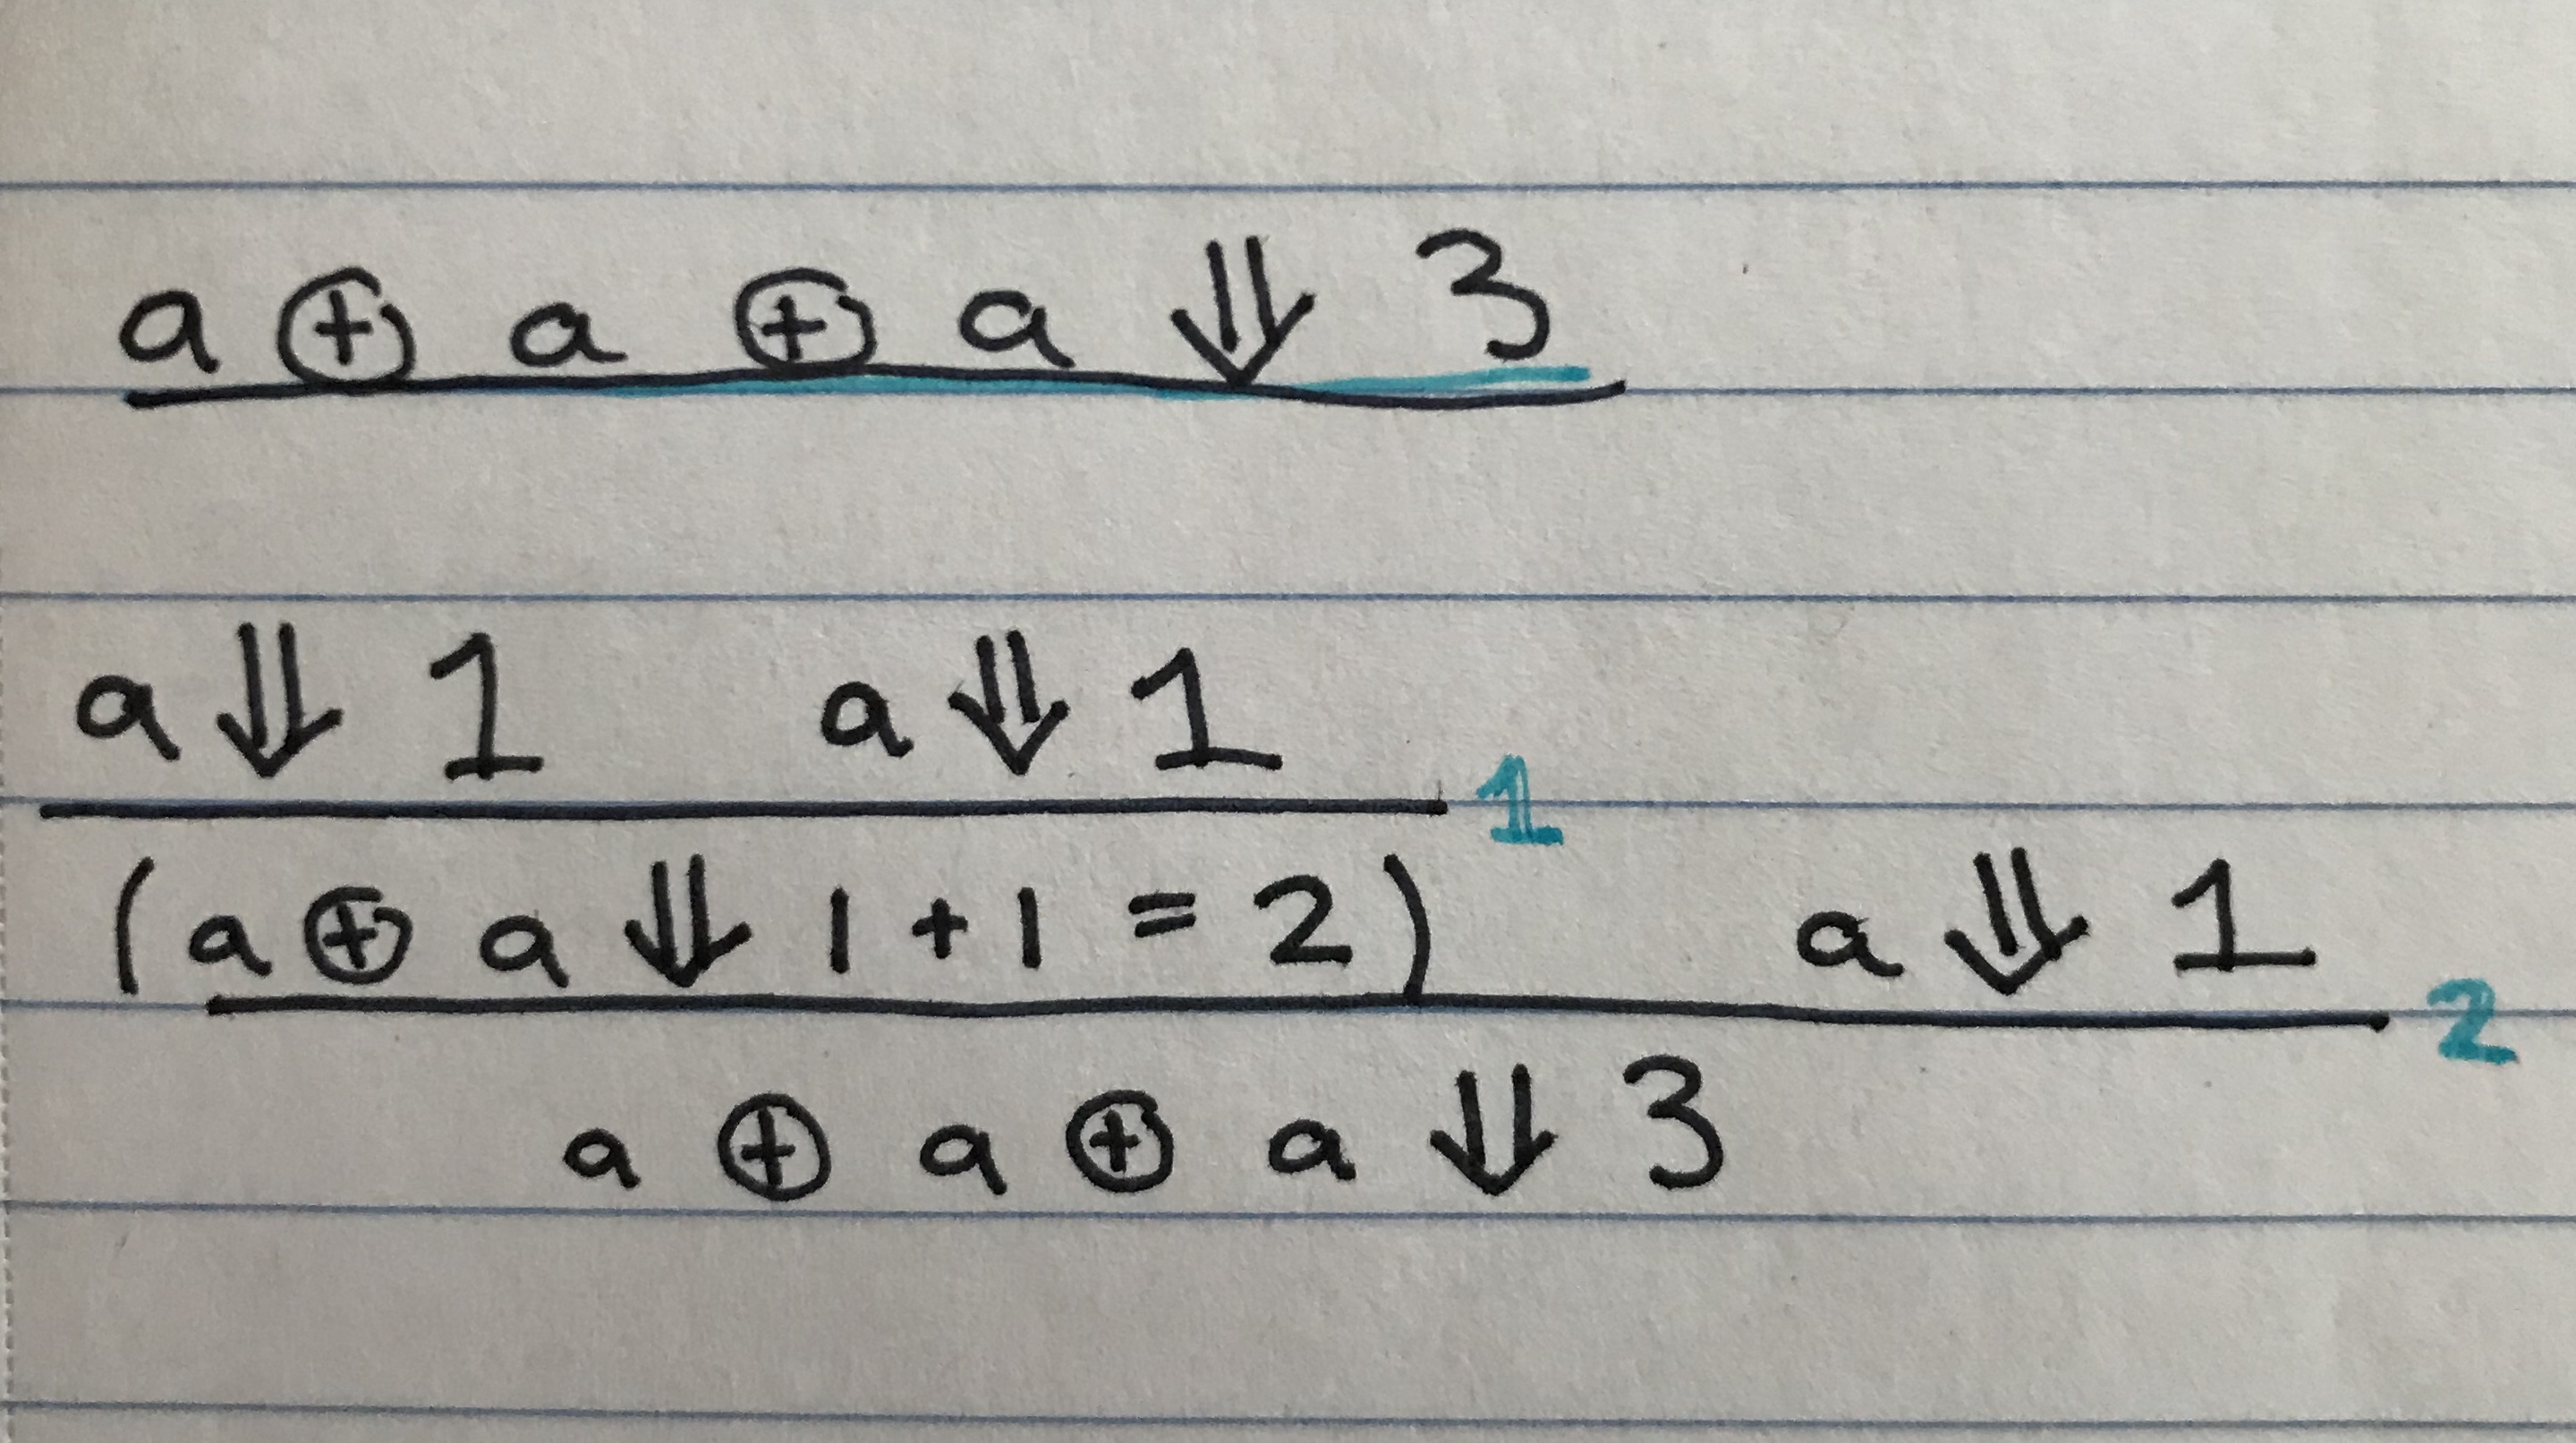 a ⊕ a ⊕ a ⇓ 3
a ⇓ 1 a ⇓ 1
1
(a ⊕ a ⇓ 1 + 1 = 2) a ⇓ 1
2
a ⊕ a ⊕ a ⇓ 3